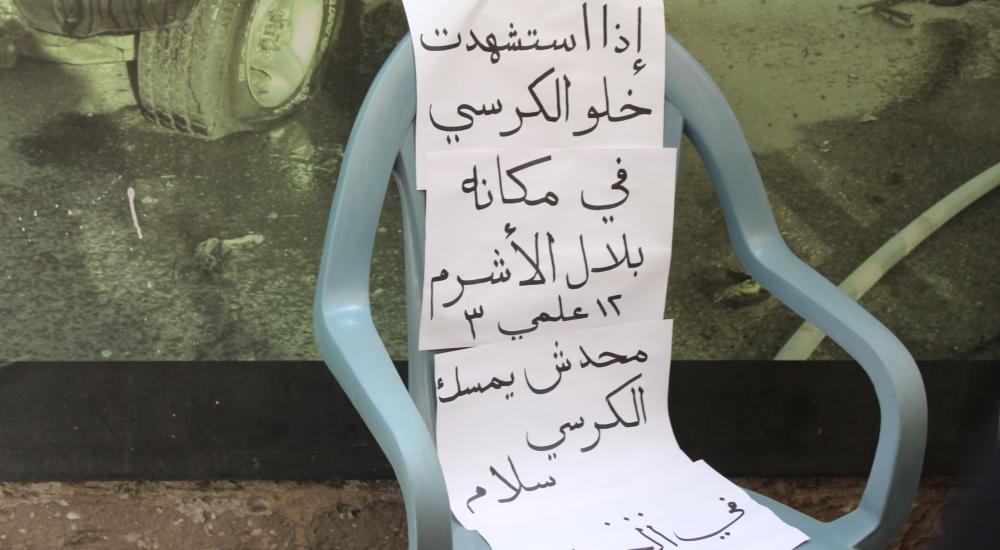 إذا استشهدت
خلو الكرسي
في مكانه
بلال الأشرم
١٢ علمي ٣
محدش يمسك
الكرسي
سلام
في